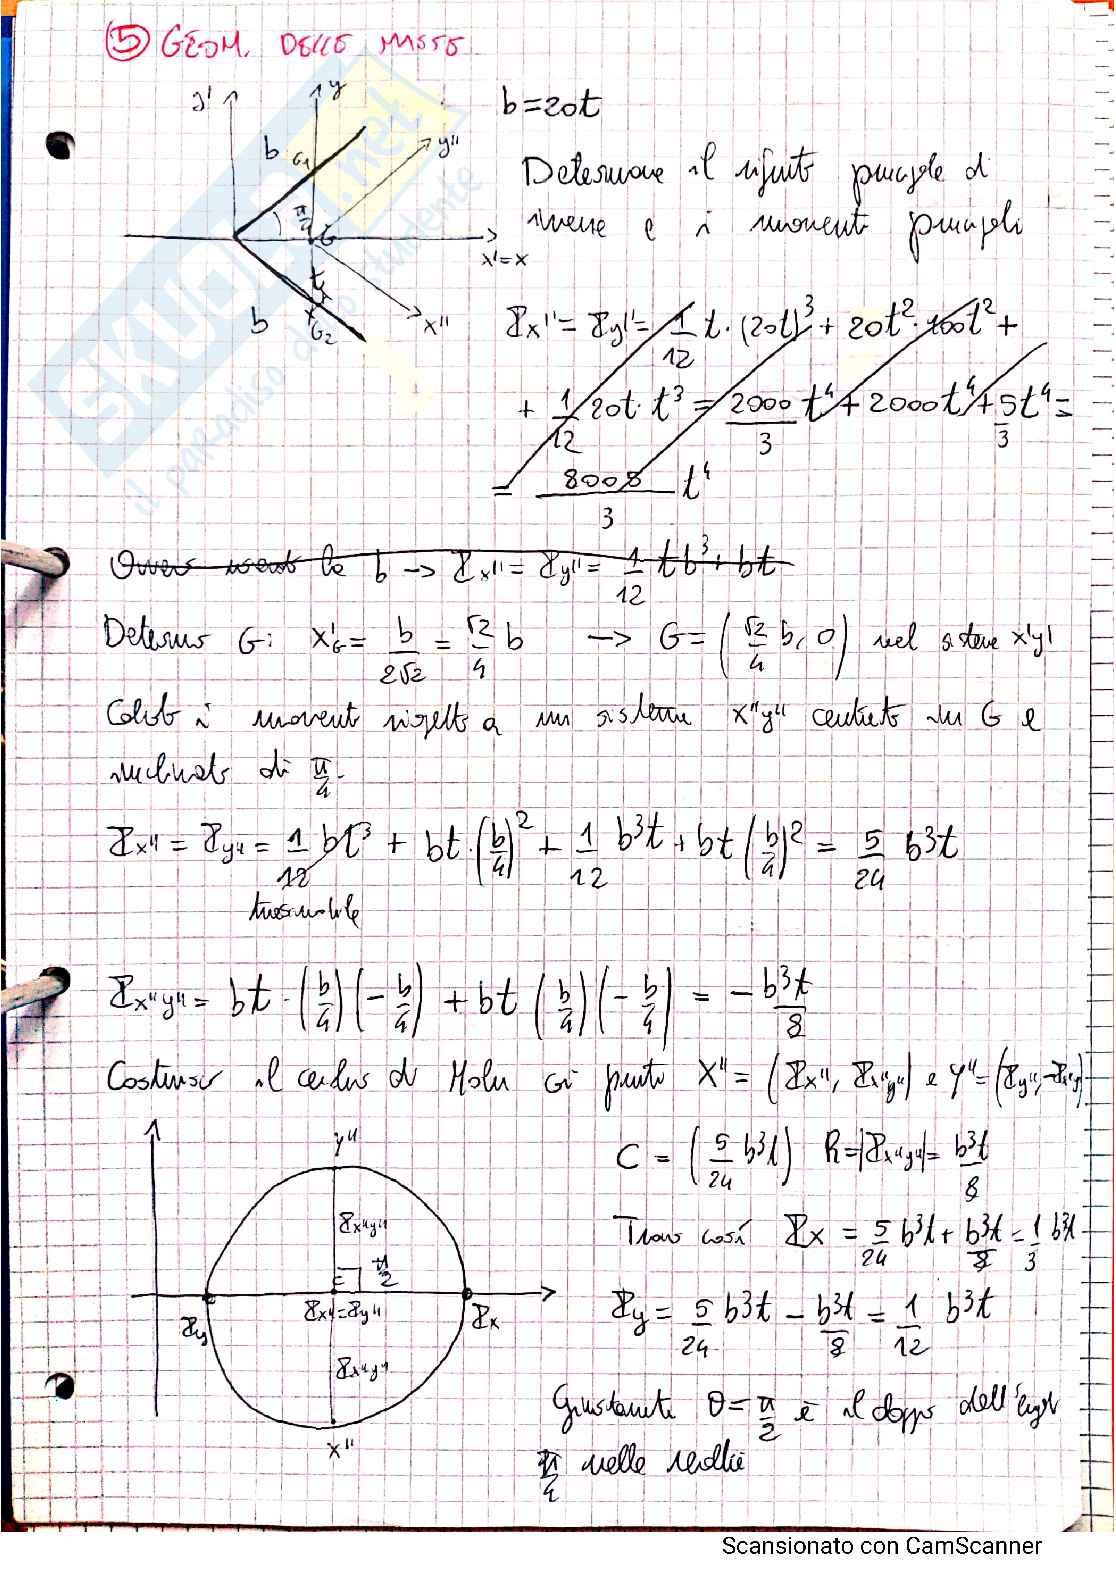 ⑤ GEOM. DELLE MASSE
y' y b=20t
b G1 y''
π/4 G x'=x
Determinare il riferito principale di
inerzie e i momenti principali
t
b G2 x''
Ix'' = Iy'' = 1/12 t · (20t)³ + 20t² · 100t² +
+ 1/12 20t · t³ = 2000/3 t⁴ + 2000t⁴ + 5/3 t⁴ =
= 8008/3 t⁴
b → Ix'' = Iy'' = 1/12 t b³ + bt
Determino G: x'G = b/2√2 = √2/4 b → G = (√2/4 b, 0) nel sistema x'y'
Calcolo i momenti rispetto a un sistema x''y'' centrato in G e
inclinato di π/4.
Ix'' = Iy'' = 1/12 bt³ + bt · (b/4)² + 1/12 b³t + bt (b/4)² = 5/24 b³t
trascurabile
Ix''y'' = bt · (b/4) (-b/4) + bt (b/4) (-b/4) = - b³t/8
Costruisco il cerchio di Mohr coi punti X'' = (Ix'', Ix''y'') e Y'' = (Iy'', -Ix''y'')
Y'' C = (5/24 b³t) R = |Ix''y''| = b³t/8
Ix''y''
Trovo così Ix = 5/24 b³t + b³t/8 = 1/3 b³t
C π/2
Iy Ix''=Iy'' Ix
Iy = 5/24 b³t - b³t/8 = 1/12 b³t
Ix''y''
Giustamente θ = π/2 è il doppio dell'angolo
X''
π/4 nelle realtà
SKUOLA.net
il paradiso dello studente
Scansionato con CamScanner